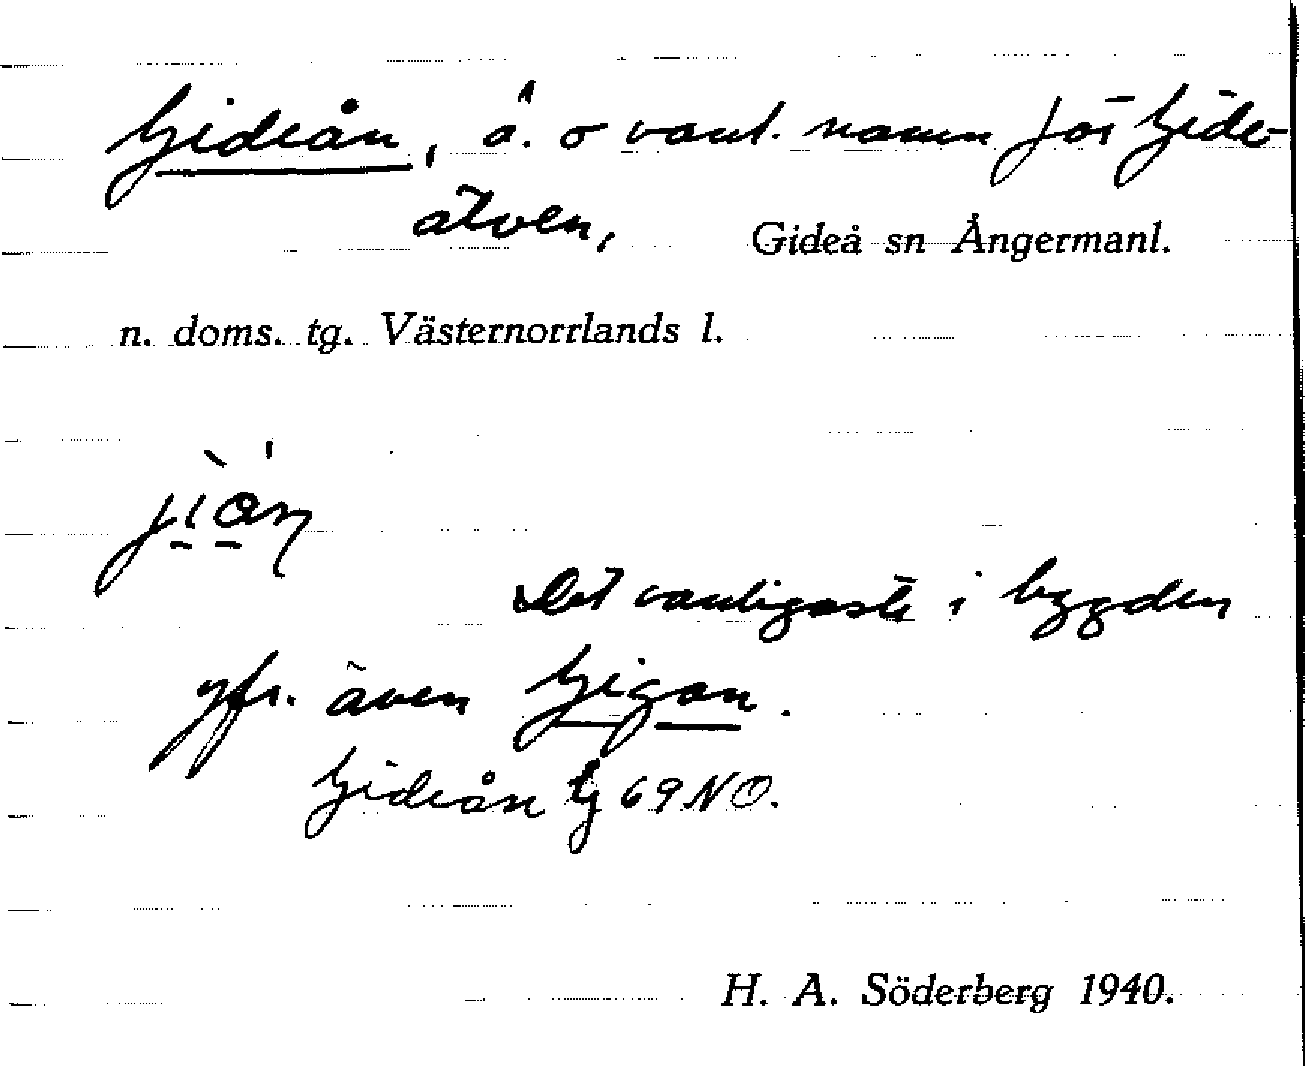 Gideån, å. o vanl. namn för Gide-
älven,
Gideå sn Ångermanl.
n. doms. tg. Västernorrlands l.
Det vanligaste i bygden
jfr. även Gigån.
Gideån G 69 NO.
H. A. Söderberg 1940.